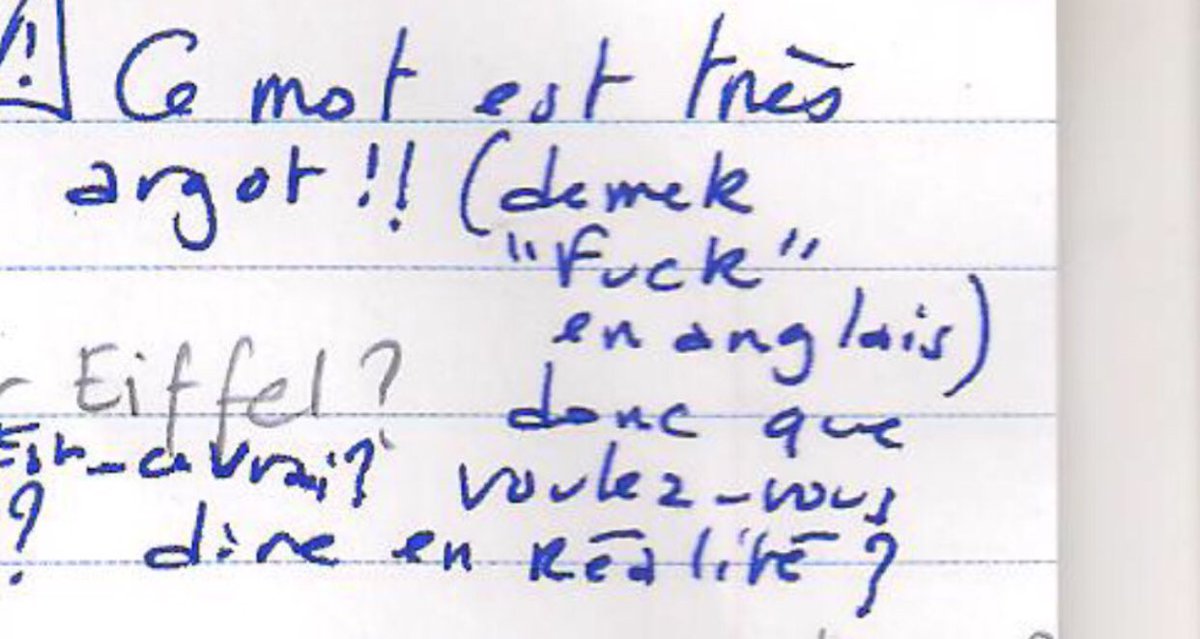 ! Ce mot est très
argot !! (demek
"Fuck"
en anglais)
Eiffel ?
donc que
Est-ce vrai ?
voulez-vous
? dire en Réalité ?